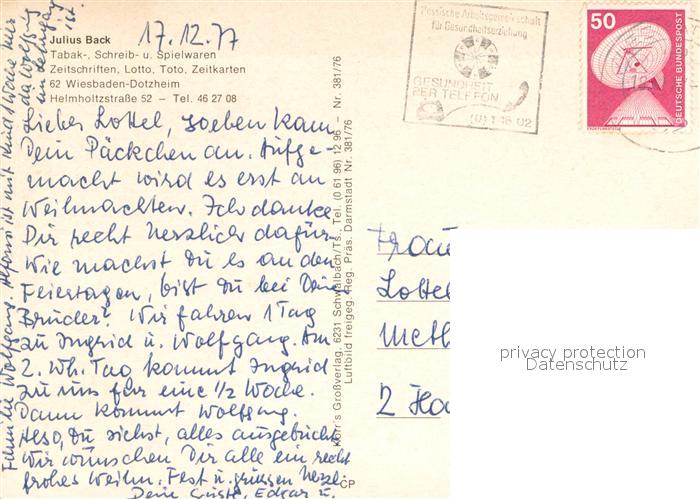 Julius Back
Tabak-, Schreib- u. Spielwaren
Zeitschriften, Lotto, Toto, Zeitkarten
62 Wiesbaden-Dotzheim
Helmholtzstraße 52 – Tel. 46 27 08
17.12.77
Lieber Lottel, soeben kam
Dein Päckchen an. Aufge-
macht wird es erst an
Weihnachten. Ich danke
Dir recht herzlich dafür.
Wie machst du es an den
Feiertagen, bist du bei Deinem
Bruder? Wir fahren 1 Tag
zu Ingrid u. Wolfgang. Am
2. Wh. Tag kommt Ingrid
zu uns für eine 1/2 Woche.
Dann kommt Wolfgang.
Also, Du siehst, alles ausgebucht.
Wir wünschen Dir alle ein recht
frohes Weihn. Fest u. grüssen herzl.
Edgar u.
Familie Wolfgang. ist mit Kind 1 Woche hier
da Wolfgang
ist.
Korr's Großverlag, 6231 Schwalbach/Ts., Tel. (0 61 96) 12 96 – Nr. 381/76
Luftbild freigeg. Reg. Präs. Darmstadt Nr. 381/76
CP
Hessische Arbeitsgemeinschaft
für Gesundheitserziehung
GESUNDHEIT
PER TELEFON
(0) 1 16 02
50
DEUTSCHE BUNDESPOST
Frau
Lottel
Meth
2 Ha
privacy protection
Datenschutz